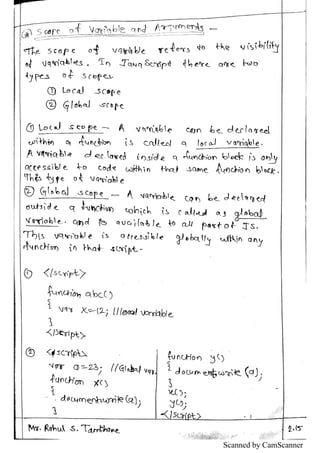 ⓐ Scope of Variable and Arguments -
The scope of variable refers to the visibility
of variables. In JavaScript there are two
types of scopes.
① Local scope
② Global scope
① Local scope - A variable can be declared
within a function is called a local variable.
A variable declared inside a function block is only
accessible to code within that same function block.
This type of variable
② Global scope - A variable can be declared
outside a function which is called as global
variable. and is available to all part of JS.
This variable is accessible globally within any
function in that script.
① </script>
function abc()
{
var x=12; //local variable
}
</script>
② <script>
var a=23; //Global var.
function x()
{
document.write(a);
}
function y()
{ document.write(a);
}
x();
y();
</script>
Mr. Rahul S. Tamkhane
2.15
Scanned by CamScanner